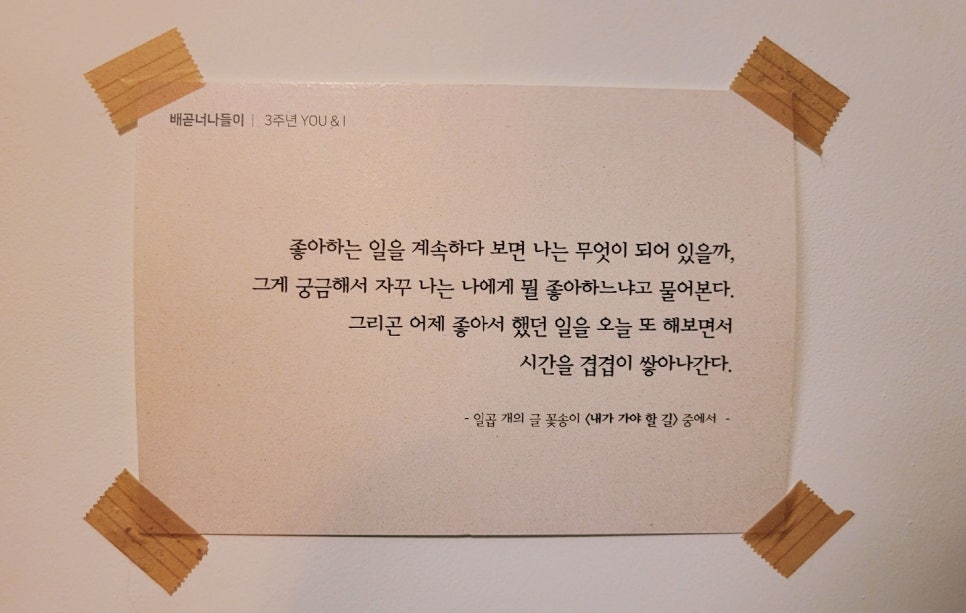 배곧너나들이 | 3주년 YOU & I
좋아하는 일을 계속하다 보면 나는 무엇이 되어 있을까,
그게 궁금해서 자꾸 나는 나에게 뭘 좋아하느냐고 물어본다.
그리곤 어제 좋아서 했던 일을 오늘 또 해보면서
시간을 겹겹이 쌓아나간다.
- 일곱 개의 글 꽃송이 <내가 가야 할 길> 중에서 -